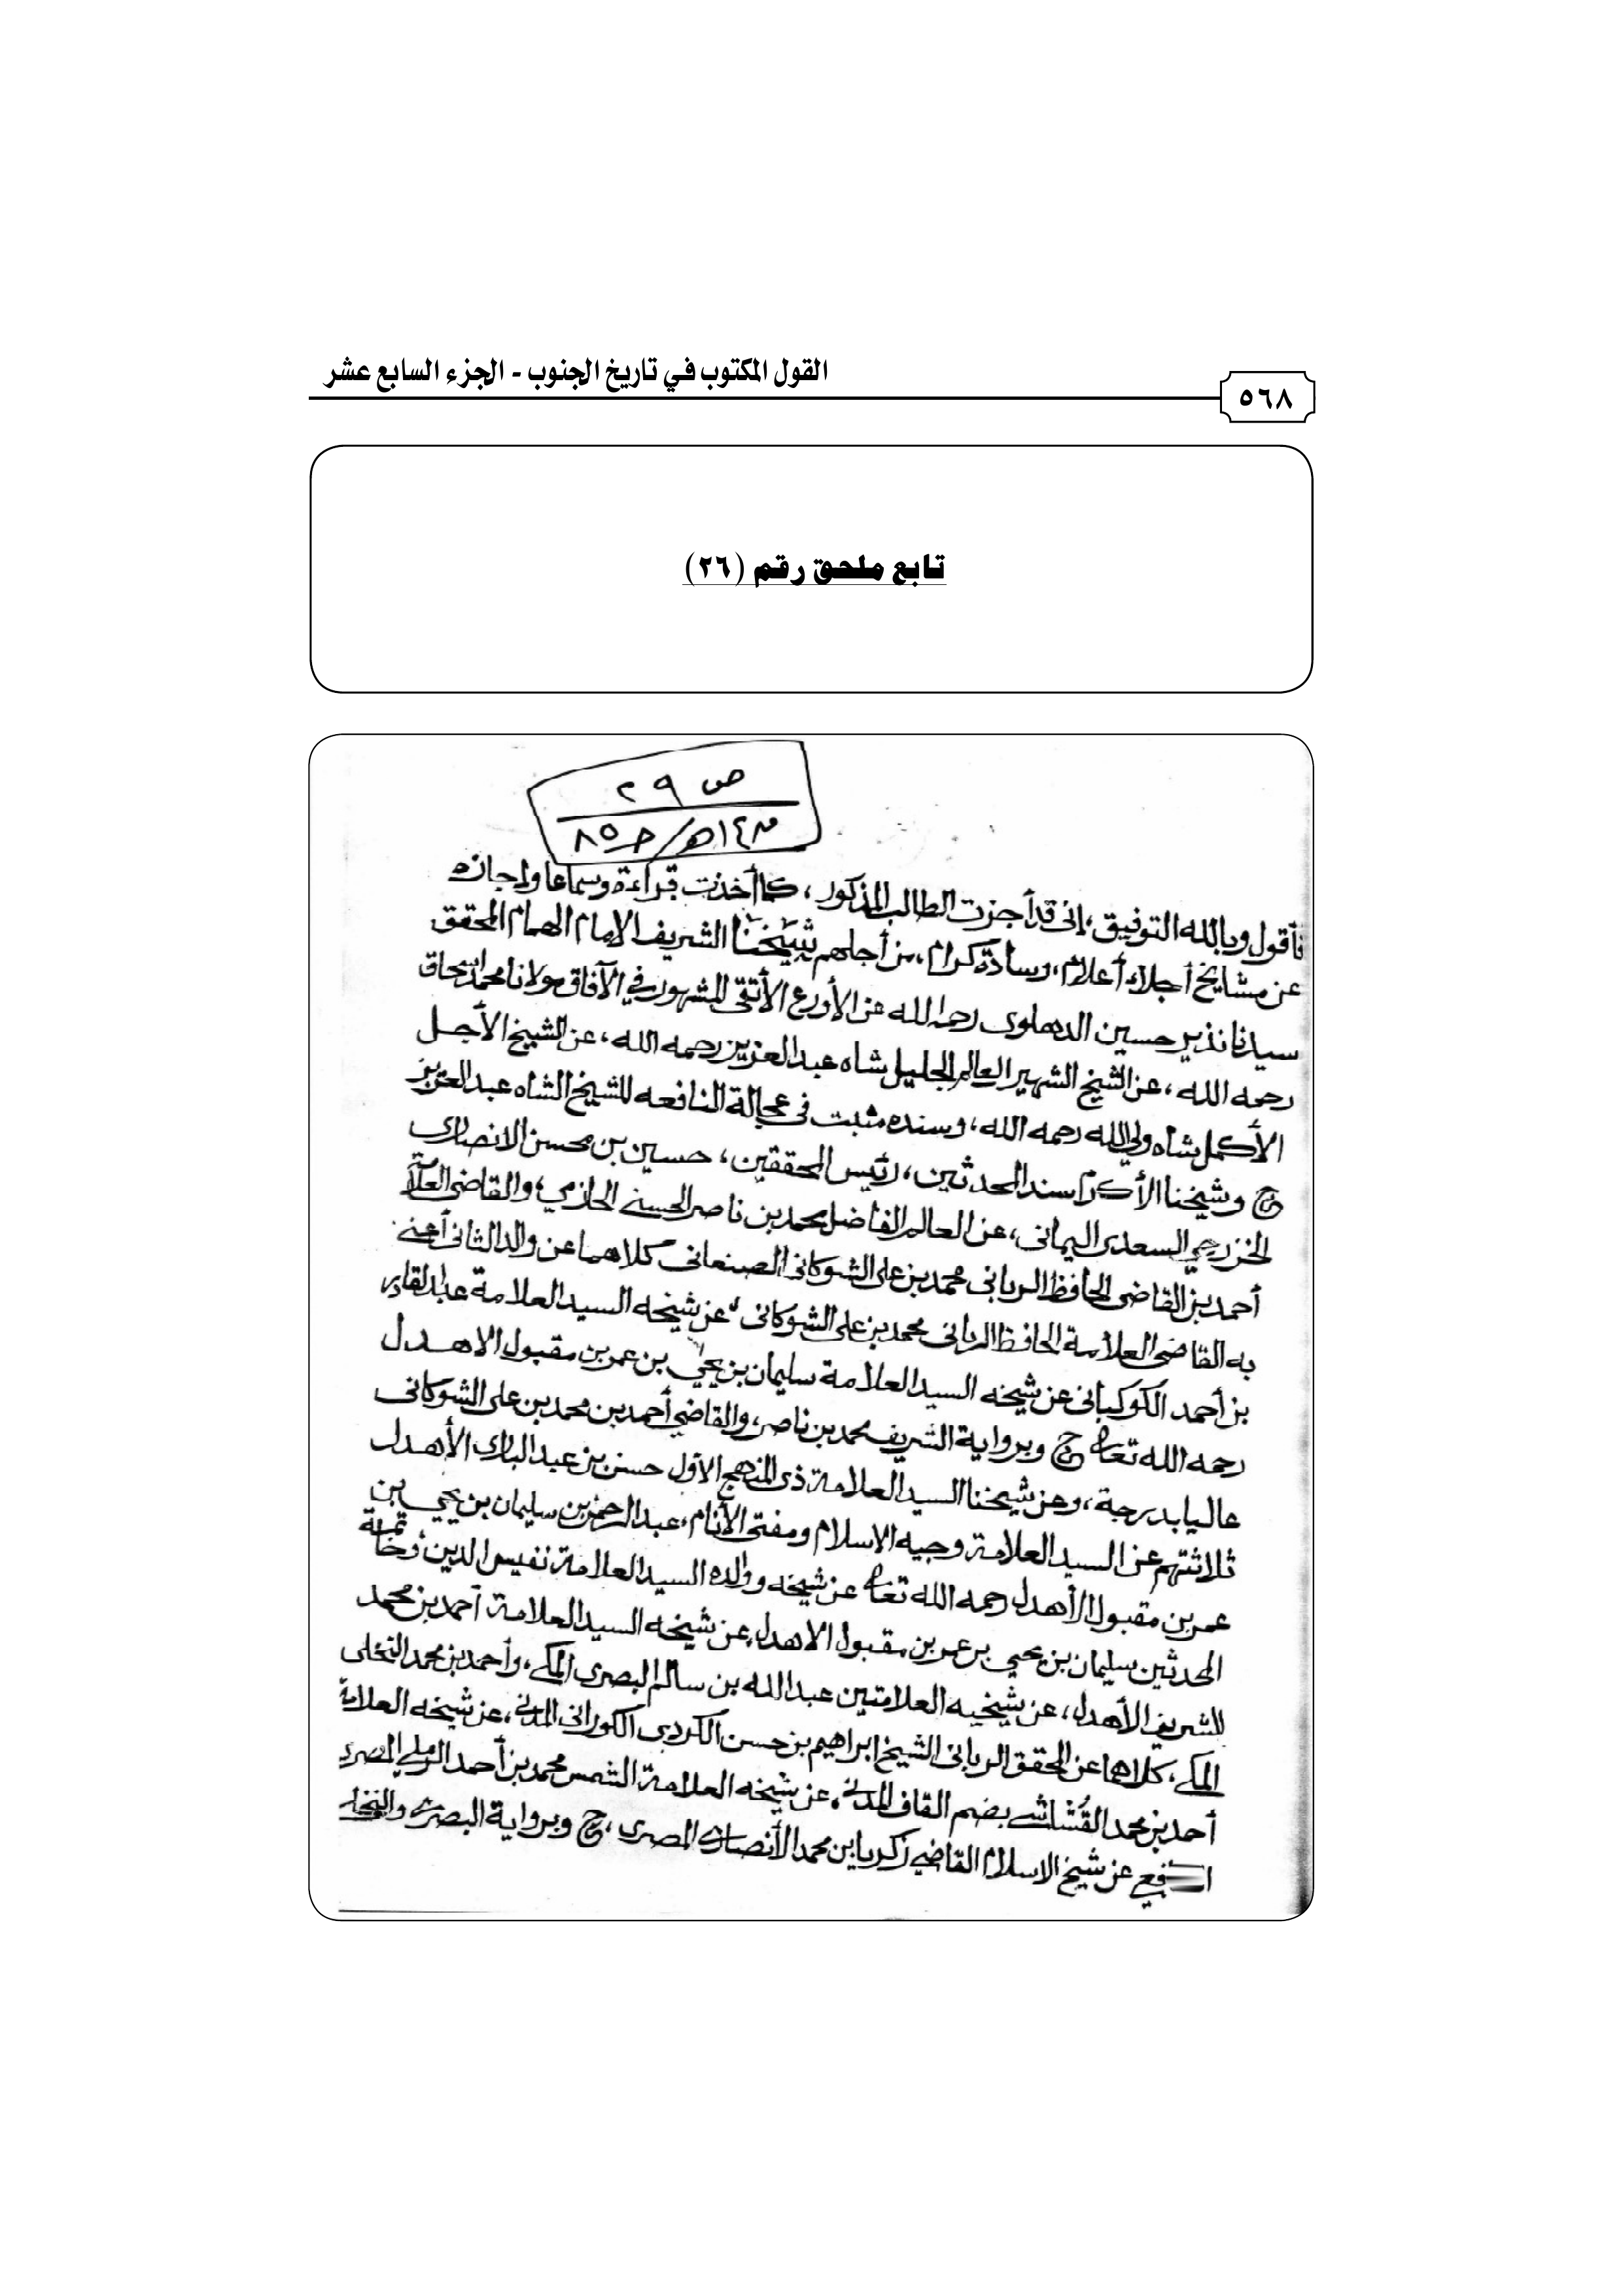 القول المكتوب في تاريخ الجنوب - الجزء السابع عشر
٥٦٨
تابع ملحق رقم (٢٦)
ص ٢٩
فأقول وبالله التوفيق، إنى قد أجزت الطالب المذكور، كما أخذت قراءة وسماعا وإجازه
عن مشايخ أجلاء أعلام، وسادة كرام، من أجلهم شيخنا الشريف الإمام الهمام المحقق
سيدنا نذير حسين الدهلوى رحمه الله عن الأورع الأتقى المشهور في الآفاق مولانا محمد اسحاق
رحمه الله، عن الشيخ الشهير العالم الجليل شاه عبد العزيز رحمه الله، عن الشيخ الأجل
الأكمل شاه ولي الله رحمه الله، وسنده مثبت فى عجالة النافعه للشيخ الشاه عبد العزيز
ح وشيخنا الأكرم سند المحدثين، رئيس المحققين، حسين بن محسن الانصارى
الخزرجي السعدى اليمانى، عن العالم الفاضل محمد بن ناصر الحسنى الحازمي، والقاضى العلامة
أحمد بن القاضى الحافظ الربانى محمد بن على الشوكانى الصنعانى كلاهما عن والد الثانى أعنى
به القاضى العلامة الحافظ الربانى محمد بن على الشوكانى عن شيخه السيد العلامة عبد القادر
بن أحمد الكوكبانى عن شيخه السيد العلامة سليمان بن يحيى بن عمر بن مقبول الاهدل
رحمه الله تعالى ح وبرواية الشريف محمد بن ناصر، والقاضي أحمد بن محمد بن على الشوكانى
عاليا بدرجة، وعن شيخنا السيد العلامة ذى المنهج الأول حسن بن عبد البارى الأهدل
ثلاثتهم عن السيد العلامة وجيه الاسلام ومفتى الأنام، عبد الرحمن بن سليمان بن يحيى بن
عمر بن مقبول الأهدل رحمه الله تعالى عن شيخه ووالده السيد العلامة نفيس الدين، وخاتمة
المحدثين سليمان بن يحيى بن عمر بن مقبول الاهدل، عن شيخه السيد العلامة أحمد بن محمد
الشريف الأهدل، عن شيخيه العلامتين عبد الله بن سالم البصرى المكي، وأحمد بن محمد النخلى
المكي، كلاهما عن المحقق الربانى الشيخ ابراهيم بن حسن الكردى الكورانى المدنى، عن شيخه العلامة
أحمد بن محمد القُشاشي بضم القاف المدنى، عن شيخه العلامة الشمس محمد بن أحمد الرملي المصرى
عن شيخ الاسلام القاضي زكريا بن محمد الأنصارى المصرى، ح وبرواية البصرى والنخلي